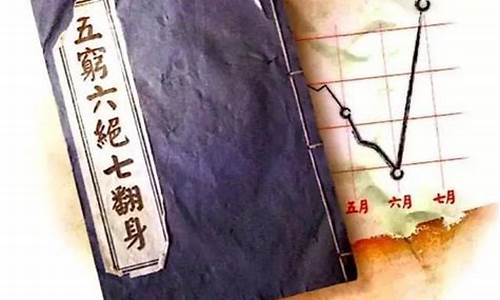 五窮六絕七翻身
五月 六月 七月